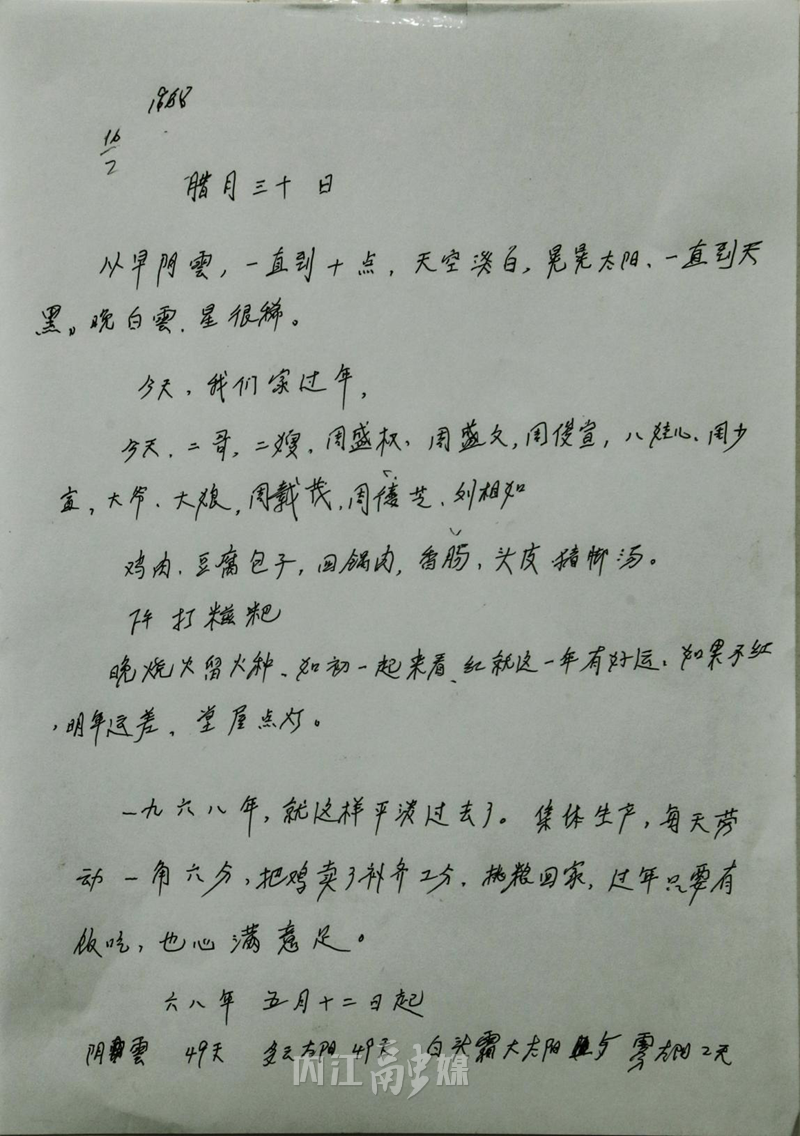 1968
16/2
腊月三十日
从早阴雲，一直到十点，天空淡白，晃晃太阳、一直到天
黑。晚白雲．星很稀。
今天，我们家过年，
今天．二哥，二嫂．周盛权、周盛文，周俊宣，八娃心、周少
宣，大爷、大娘，周载茂，周倩芝、刘相如
鸡肉．豆腐包子，回锅肉，香肠，头皮猪脚汤。
下午打糍粑
晚烧火留火种、如初一起来看．红就这一年有好运，如果不红
，明年运差，堂屋点灯。
一九六八年，就这样平淡过去了。集体生产，每天劳
动一角六分，把鸡卖了补齐工分．挑粮回家，过年只要有
饭吃，也心满意足。
六八年 五月十二日起
阴雲 49天 多云太阳49天 白头霜大太阳 雾太阳2天
内江融媒